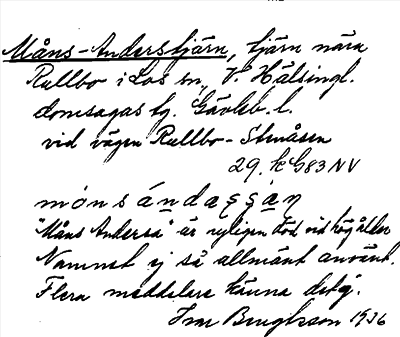 Måns-Anderstjärn, tjärn nära
Rullbo i Los sn, V. Hälsingl.
domsagas tg. Gävleb. l.
vid vägen Rullbo - Stenåsen
29. k G83 NV
mónsándaşşaŋ
"Måns Andersa" är nyligen död vid hög ålder
Namnet ej så allmänt använt.
Flera meddelare känna det ej.
Ivar Bengtsson 1936